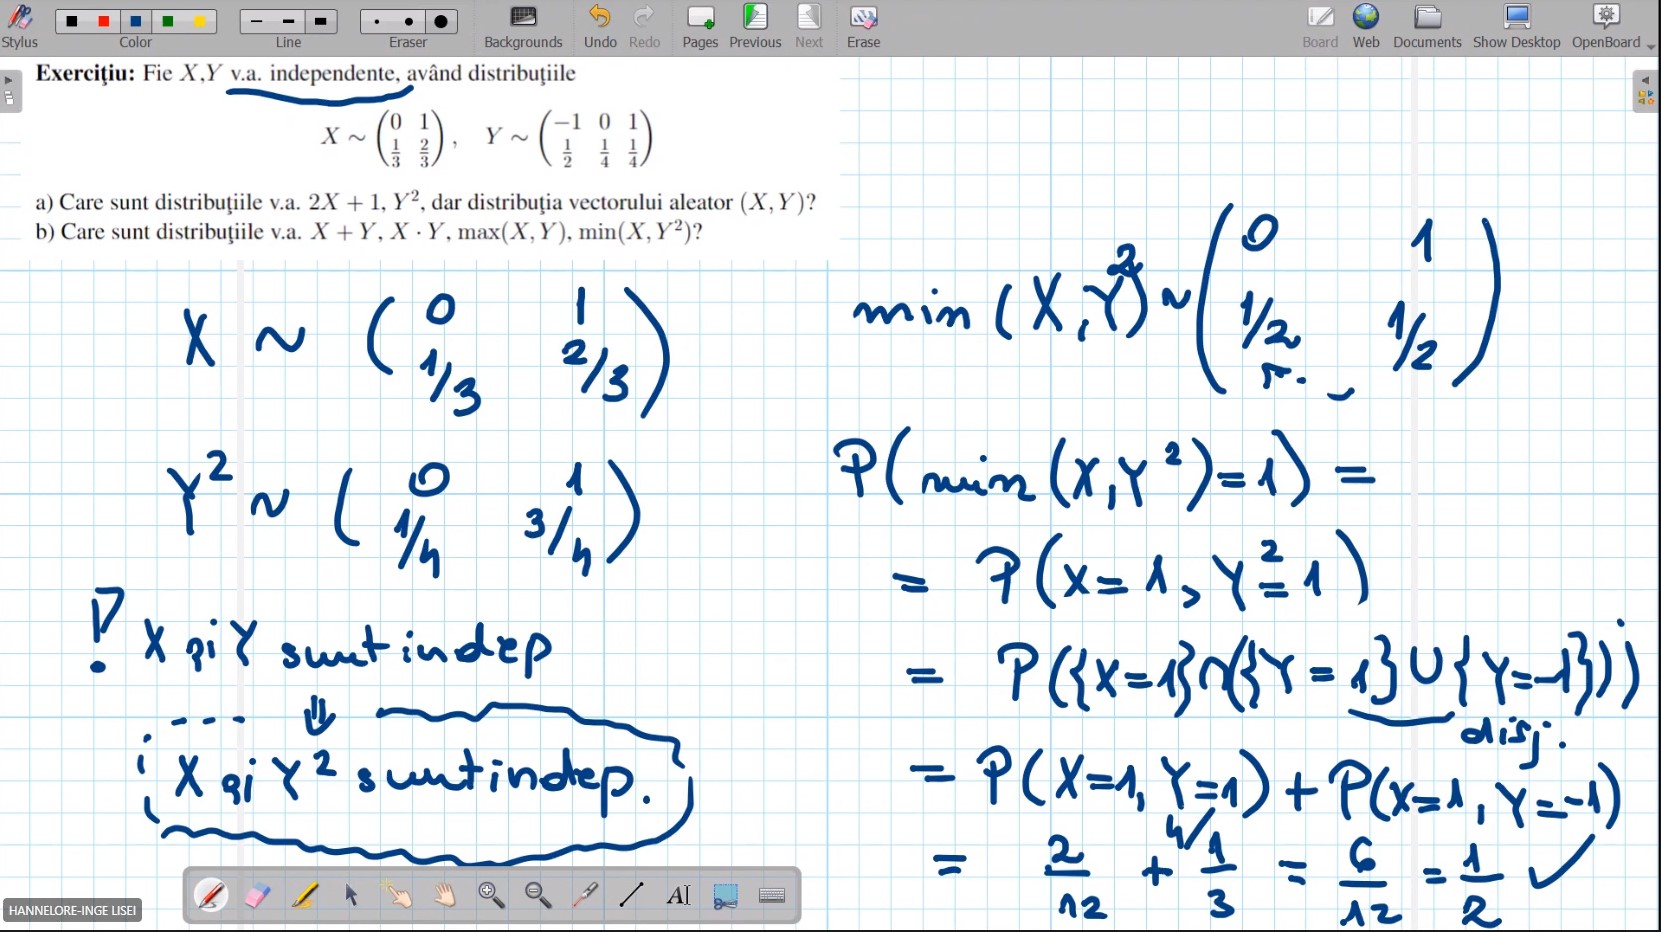 Stylus Color Line Eraser Backgrounds Undo Redo Pages Previous Next Erase Board Web Documents Show Desktop OpenBoard
Exercițiu: Fie X,Y v.a. independente, având distribuțiile
X ∼ ( 0 1
1/3 2/3 ) , Y ∼ ( −1 0 1
1/2 1/4 1/4 )
a) Care sunt distribuțiile v.a. 2X + 1, Y², dar distribuția vectorului aleator (X, Y)?
b) Care sunt distribuțiile v.a. X + Y, X · Y, max(X, Y), min(X, Y²)?
X ~ ( 0 1
1/3 2/3 )
Y² ~ ( 0 1
1/4 3/4 )
! X și Y sunt indep
⇓
X și Y² sunt indep.
min (X,Y²) ~ ( 0 1
1/2 1/2 )
P(min(X,Y²)=1) =
= P(X=1, Y²=1)
= P({X=1}∩({Y=1}∪{Y=-1}))
disj.
= P(X=1, Y=1) + P(X=1, Y=-1)
= 2/12 + 4/ 1/3 = 6/12 = 1/2 ✓
HANNELORE-INGE LISEI